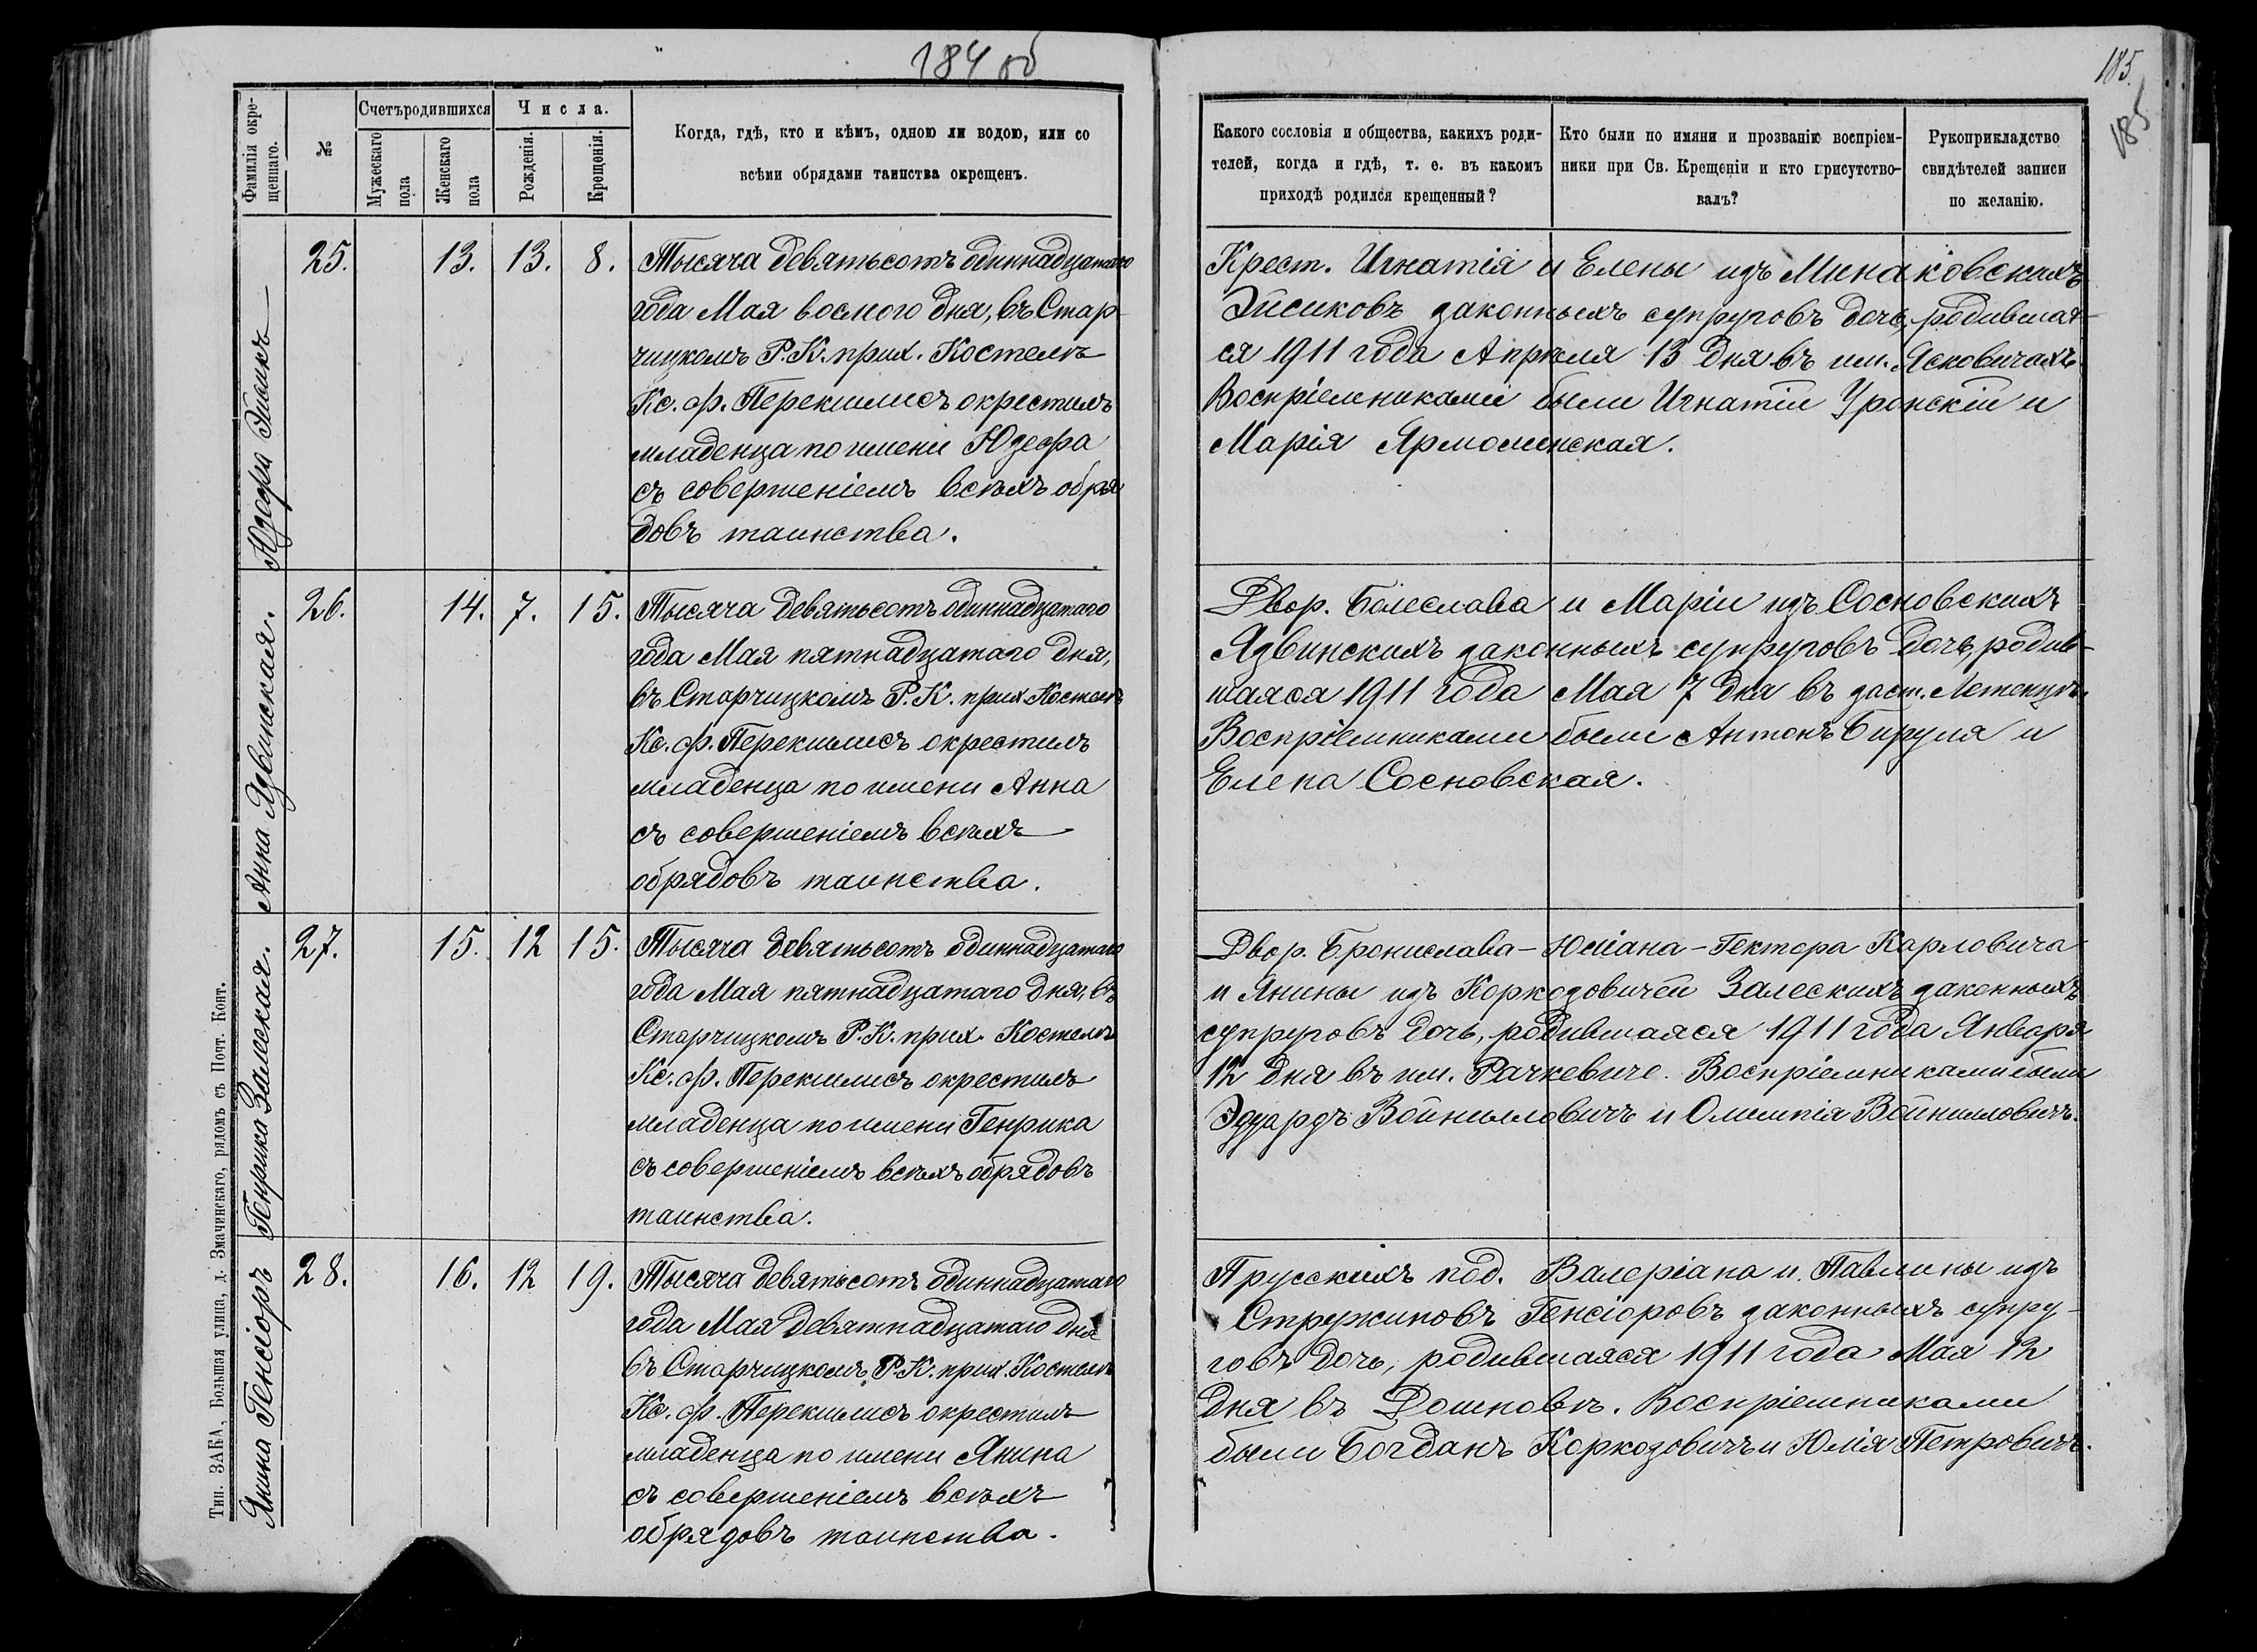 184 об
Фамилія окре-
щеннаго.
№
Счетъ родившихся
Мужескаго
пола
Женскаго
пола
Числа.
Рожденія.
Крещенія.
Когда, гдѣ, кто и кѣмъ, одною ли водою, или со
всѣми обрядами таинства окрещенъ.
Юзефа Эйсикъ
25.
13.
13.
8.
Тысяча девятьсотъ одиннадцатаго
года Мая восмого дня, въ Стар-
чицкомъ Р.К. прих. Костелѣ
Кс. ф. Перекшлисъ окрестилъ
младенца по имени Юзефа
съ совершеніемъ всѣхъ обря
довъ таинства.
Анна Язвинская.
26.
14.
7.
15.
Тысяча девятьсотъ одиннадцатаго
года Мая пятнадцатаго дня,
въ Старчицкомъ Р.К. прих. Костелѣ
Кс. ф. Перекшлисъ окрестилъ
младенца по имени Анна
съ совершеніемъ всѣхъ
обрядовъ таинства.
Генрика Залеская.
27.
15.
12
15.
Тысяча девятьсотъ одиннадцатаго
года Мая пятнадцатаго дня, въ
Старчицкомъ Р.К. прих. Костелѣ
Кс. ф. Перекшлисъ окрестилъ
младенца по имени Генрика
съ совершеніемъ всѣхъ обрядовъ
таинства.
Янина Генсіоръ
28.
16.
12
19.
Тысяча девятьсотъ одиннадцатаго
года Мая девятнадцатаго дня
въ Старчицкомъ Р.К. прих. Костелѣ
Кс. ф. Перекшлисъ окрестилъ
младенца по имени Янина
съ совершеніемъ всѣхъ
обрядовъ таинства.
Тип. ЗАКА, Большая улица, д. Змачинскаго, рядомъ съ Почт. Конт.
185.
185
Какого сословія и общества, какихъ роди-
телей, когда и гдѣ, т. е. въ какомъ
приходѣ родился крещенный?
Кто были по имяни и прозванію воспріем-
ники при Св. Крещеніи и кто присутство-
валъ?
Рукоприкладство
свидѣтелей записи
по желанію.
Крест. Игнатія и Елены изъ Минаковскихъ
Эйсиковъ законныхъ супруговъ дочь, родившая-
ся 1911 года Апрѣля 13 дня въ им. Ясковичахъ.
Воспріемниками были Игнатій Уронскій и
Марія Ярмолинская.
Двор. Болеслава и Маріи изъ Сосновскихъ
Язвинскихъ законныхъ супруговъ дочь, родив-
шаяся 1911 года Мая 7 дня въ заст. Летенцѣ.
Воспріемниками были Антонъ Бируля и
Елена Сосновская.
Двор. Бронислава-Юліана-Гектора Карловича
и Янины изъ Коркозовичей Залескихъ законныхъ
супруговъ дочь, родившаяся 1911 года Января
12 дня въ им. Рачкевиче. Воспріемниками были
Эдуардъ Войнилловичъ и Олимпія Войнилловичъ.
Прусскихъ под. Валеріана и Павлины изъ
Стружиновъ Генсіоровъ законныхъ супру-
говъ дочь, родившаяся 1911 года Мая 12
дня въ Дошновѣ. Воспріемниками
были Богданъ Коркозовичъ и Юлія Петровичъ.